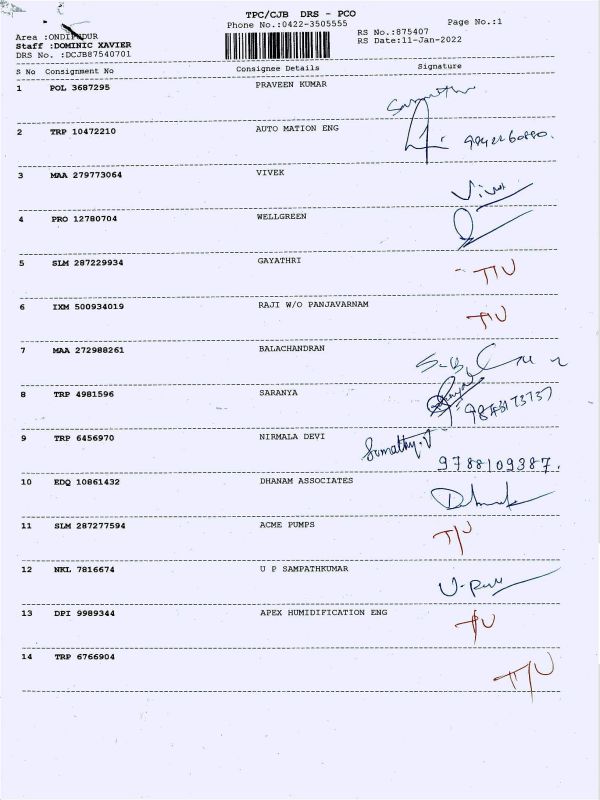 TPC/CJB DRS - PCO
Phone No.:0422-3505555
Page No.:1
Area :ONDIPUDUR
Staff :DOMINIC XAVIER
DRS No. :DCJB87540701
RS No.:875407
RS Date:11-Jan-2022
S No Consignment No Consignee Details Signature
1 POL 3687295 PRAVEEN KUMAR
2 TRP 10472210 AUTO MATION ENG
3 MAA 279773064 VIVEK
4 PRO 12780704 WELLGREEN
5 SLM 287229934 GAYATHRI T/U
6 IXM 500934019 RAJI W/O PANJAVARNAM T/U
7 MAA 272988261 BALACHANDRAN
8 TRP 4981596 SARANYA
9 TRP 6456970 NIRMALA DEVI Sumathy.J
9788109387.
10 EDQ 10861432 DHANAM ASSOCIATES
11 SLM 287277594 ACME PUMPS T/U
12 NKL 7816674 U P SAMPATHKUMAR
13 DPI 9989344 APEX HUMIDIFICATION ENG T/U
14 TRP 6766904 T/U